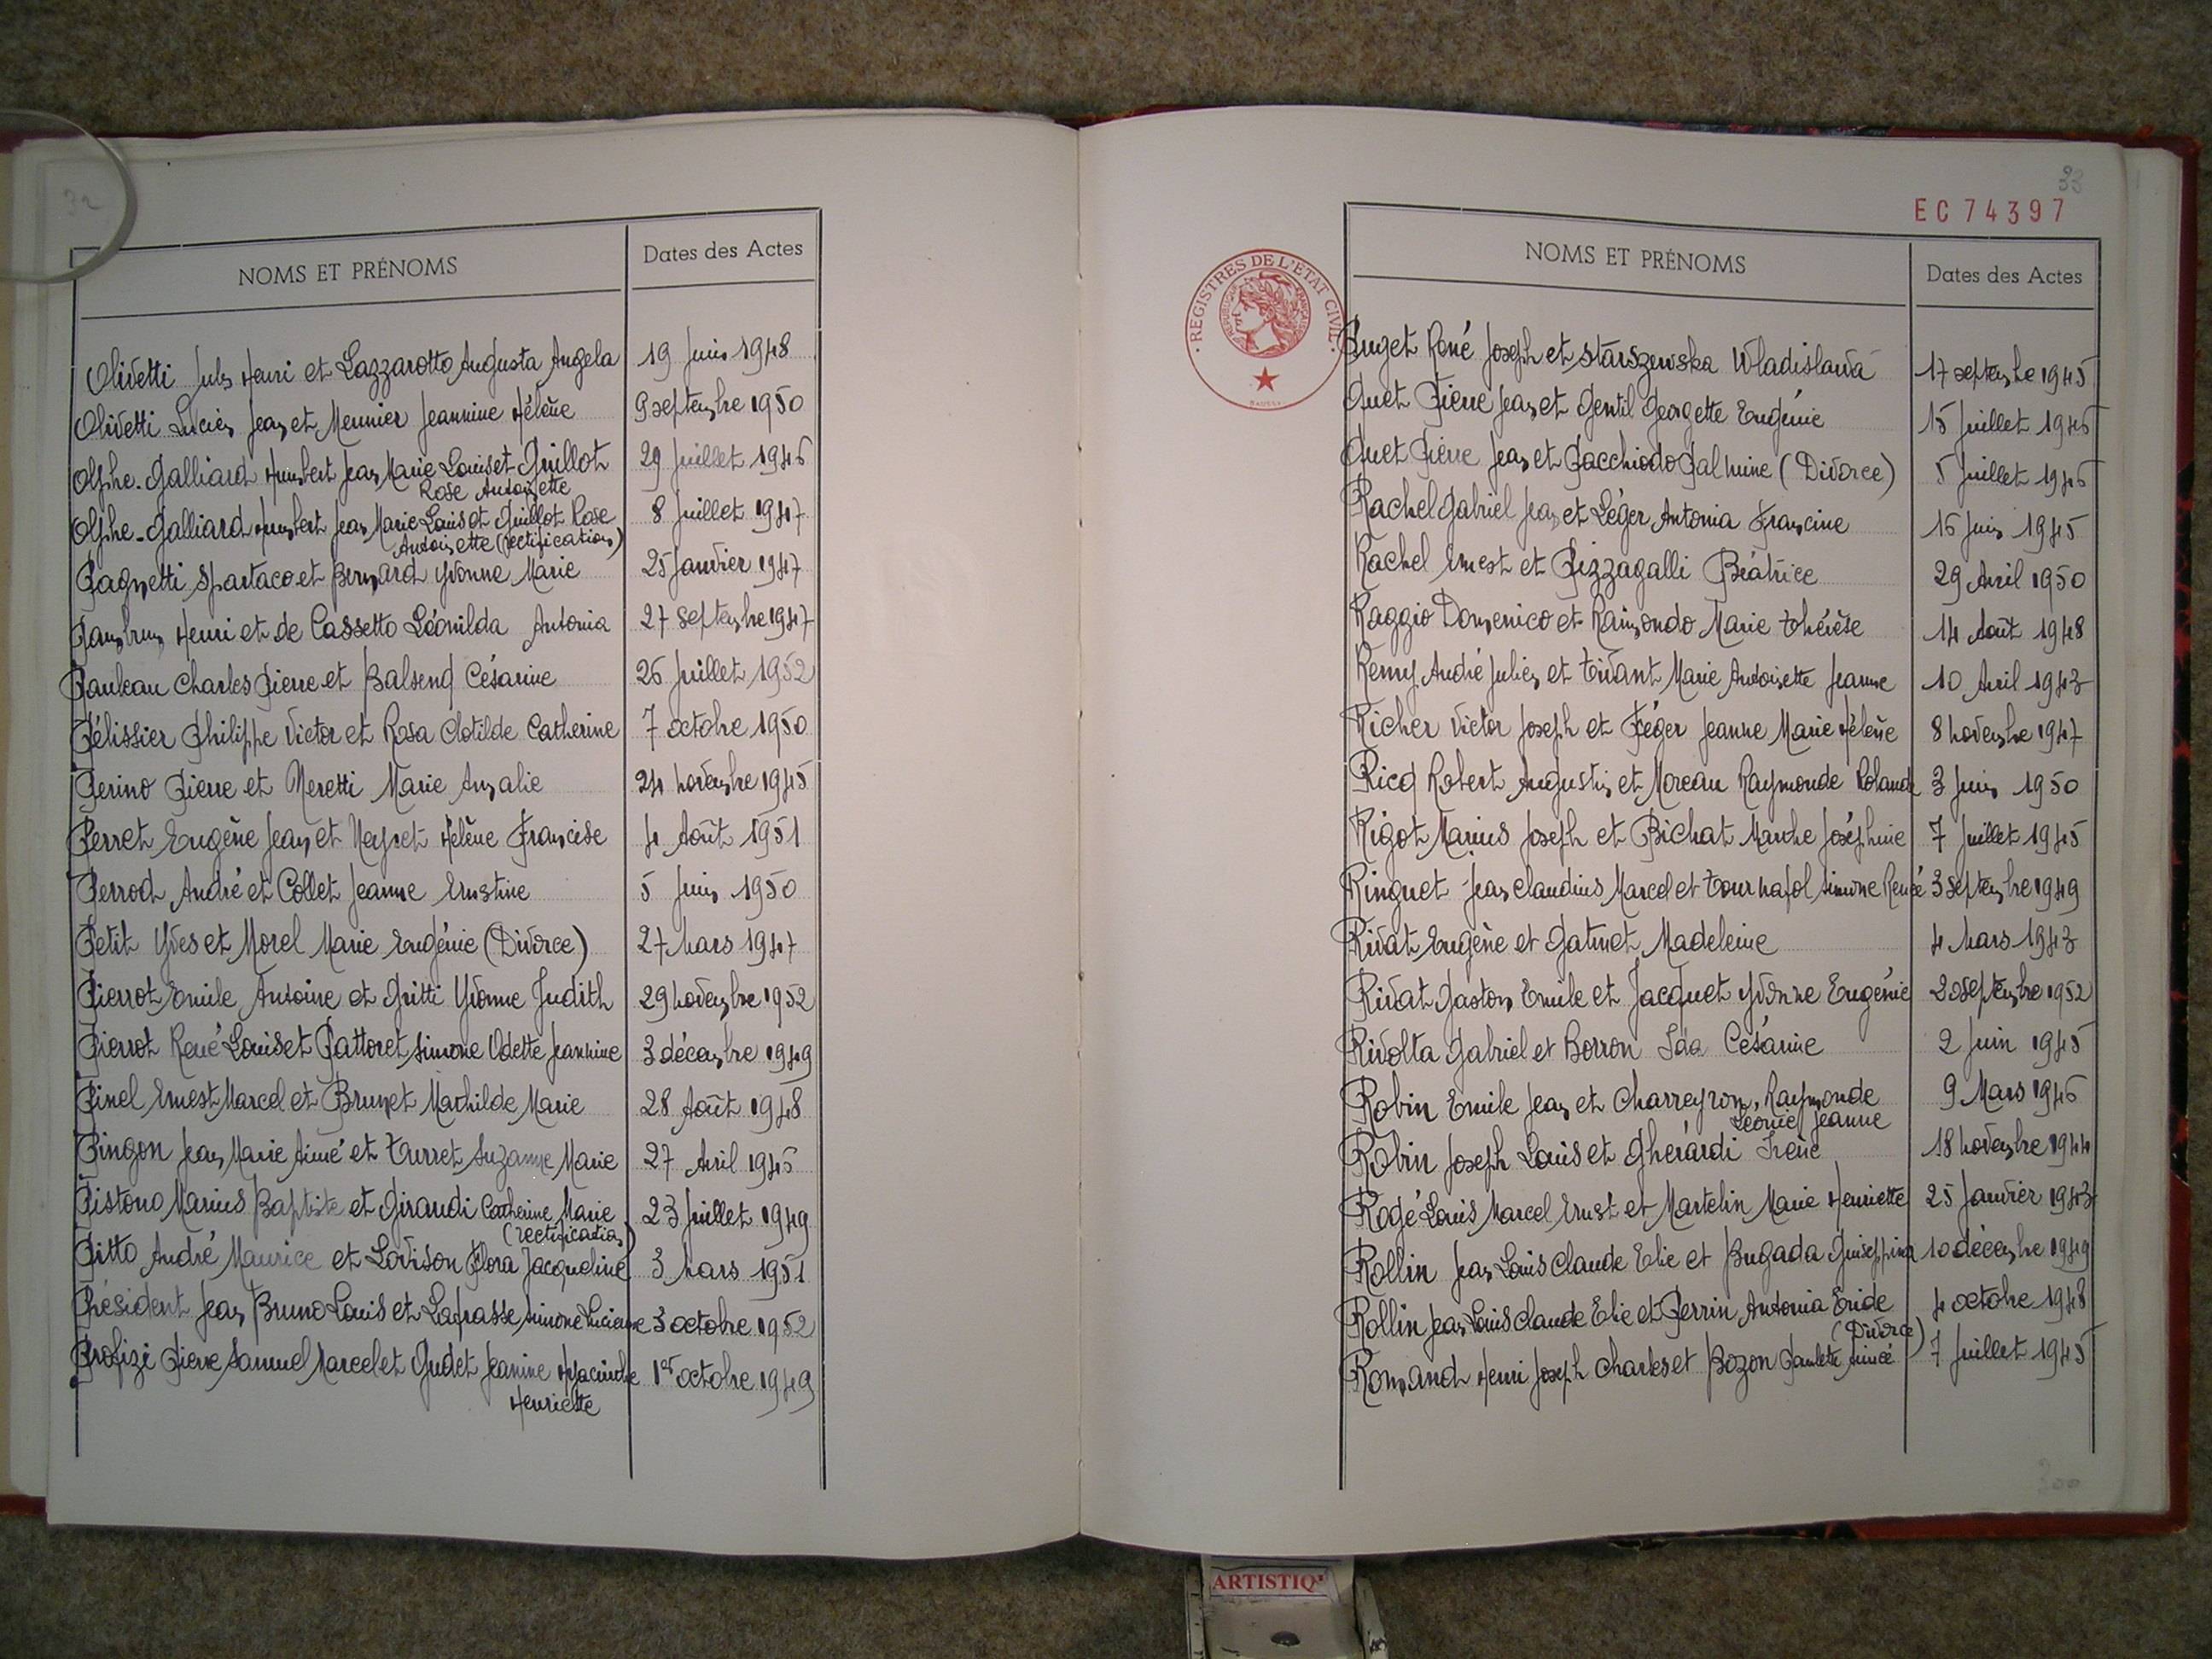 32
NOMS ET PRÉNOMS
Dates des Actes
Olivetti Jules Henri et Lazzarotto Augusta Angela 19 Juin 1948
Olivetti Lucien Jean et Meunier Jeannine Hélène 9 septembre 1950
Olphe-Galliard Humbert Jean Marie Louis et Guillot 29 Juillet 1946
Rose Antoinette
Olphe-Galliard Humbert Jean Marie Louis et Guillot Rose 8 Juillet 1947
Antoinette (rectification)
Pagnetti Spartaco et Bernard Yvonne Marie 25 Janvier 1947
Henri et de Cassetto Léonilda Antonia 27 septembre 1947
Pauleau Charles Pierre et Balsend Césarine 26 Juillet 1952
Pélissier Philippe Victor et Rosa Clotilde Catherine 7 octobre 1950
Perino Pierre et Neretti Marie Amalie 24 novembre 1945
Perret Eugène Jean et Neyret Hélène Francise 4 Août 1951
Perrod André et Collet Jeanne Ernestine 5 Juin 1950
Petit Yves et Morel Marie Eugénie (Divorce) 27 Mars 1947
Pierrot Emile Antoine et Gritti Yvonne Judith 29 novembre 1952
Pierrot René Louis et Pattoret Simone Odette Jeannine 3 décembre 1949
Pinel Ernest Marcel et Brunet Mathilde Marie 28 Août 1948
Pingon Jean Marie Aimé et Turret Suzanne Marie 27 Avril 1945
Pistono Marius Baptiste et Giraudi Catherine Marie 23 Juillet 1949
(rectification)
Pitto André Maurice et Lovison Flora Jacqueline 3 Mars 1951
Président Jean Bruno Louis et Lafrasse Simone Lucienne 3 octobre 1952
Profizi Pierre Samuel Marcel et Gudet Jeanine Hyacinthe 1er octobre 1949
Henriette
33
EC 74397
REGISTRES DE L'ETAT CIVIL
REPUBLIQUE FRANÇAISE
NOMS ET PRÉNOMS
Dates des Actes
Puget René Joseph et Starszewska Wladislawa 17 septembre 1945
Quet Pierre Jean et Gentil Georgette Eugénie 15 Juillet 1946
Quet Pierre Jean et Pacchiodo Palmine (Divorce) 5 Juillet 1946
Rachel Gabriel Jean et Léger Antonia Francine 16 Juin 1945
Rachel Ernest et Pizzagalli Béatrice 29 Avril 1950
Raggio Domenico et Raimondo Marie Thérèse 14 Août 1948
Remy André Julien et Tivant Marie Antoinette Jeanne 10 Avril 1943
Richer Victor Joseph et Féger Jeanne Marie Hélène 8 novembre 1947
Ricq Robert Augustin et Moreau Raymonde Rolande 3 Juin 1950
Rigot Marius Joseph et Bichat Marthe Joséphine 7 Juillet 1945
Ringuet Jean Claudius Marcel et Tournafol Simone Renée 3 septembre 1949
Rivat Eugène et Gatinet Madeleine 4 Mars 1943
Rivat Gaston Emile et Jacquet Yvonne Eugénie 20 septembre 1952
Rivolta Gabriel et Borron Ida Césarine 2 Juin 1945
Robin Emile Jean et Charreyron, Raymonde 9 Mars 1946
Léonie Jeanne
Robin Joseph Louis et Ghérardi Irène 18 novembre 1944
Rogé Louis Marcel Ernest et Martelin Marie Henriette 25 Janvier 1943
Rollin Jean Louis Claude Elie et Bugada Guiseppina 10 décembre 1949
Rollin Jean Louis Claude Elie et Perrin Antonia Eride 4 octobre 1948
(Divorce)
Romand Henri Joseph Charles et Bozon Paulette Aimée 7 Juillet 1945
200
ARTISTIQ